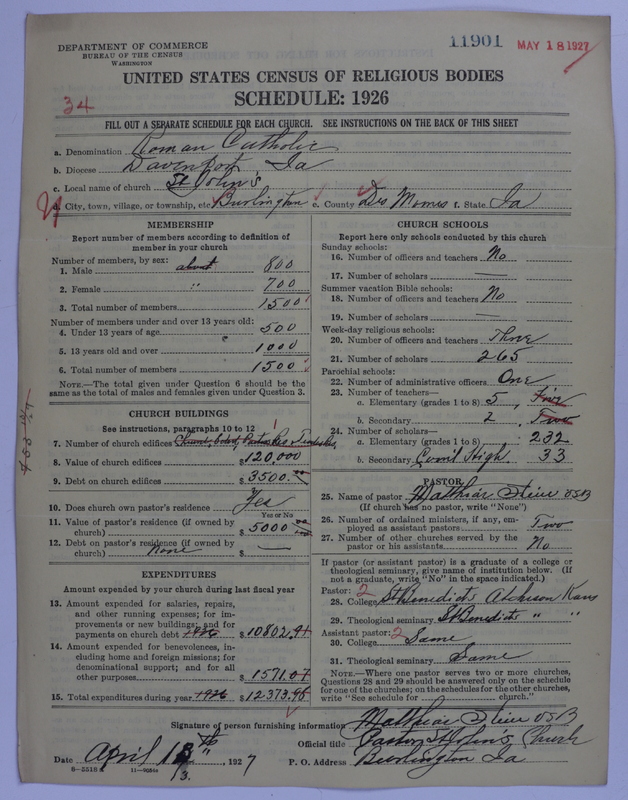 DEPARTMENT OF COMMERCE
BUREAU OF THE CENSUS
WASHINGTON
11901
MAY 18 1927
UNITED STATES CENSUS OF RELIGIOUS BODIES
SCHEDULE: 1926
34
FILL OUT A SEPARATE SCHEDULE FOR EACH CHURCH. SEE INSTRUCTIONS ON THE BACK OF THIS SHEET
a. Denomination Roman Catholic
b. Diocese Davenport, Ia
c. Local name of church St John's
d. City, town, village, or township, etc. Burlington e. County Des Moines f. State Ia
MEMBERSHIP
Report number of members according to definition of
member in your church
Number of members, by sex:
1. Male about 800
2. Female " 700
3. Total number of members 1500
Number of members under and over 13 years old:
4. Under 13 years of age 500
5. 13 years old and over 1000
6. Total number of members 1500
NOTE.—The total given under Question 6 should be the
same as the total of males and females given under Question 3.
CHURCH BUILDINGS
See instructions, paragraphs 10 to 12
7. Number of church edifices 1
8. Value of church edifices $120,000
9. Debt on church edifices $3500.00
10. Does church own pastor's residence Yes
Yes or No
11. Value of pastor's residence (if owned by
church) $5000
12. Debt on pastor's residence (if owned by
church) None $ —
EXPENDITURES
Amount expended by your church during last fiscal year
13. Amount expended for salaries, repairs,
and other running expenses; for im-
provements or new buildings; and for
payments on church debt 1926 $10802.91
14. Amount expended for benevolences, in-
cluding home and foreign missions; for
denominational support; and for all
other purposes $1571.07
15. Total expenditures during year 1926 $12373.98
CHURCH SCHOOLS
Report here only schools conducted by this church
Sunday schools:
16. Number of officers and teachers No
17. Number of scholars —
Summer vacation Bible schools:
18. Number of officers and teachers No
19. Number of scholars —
Week-day religious schools:
20. Number of officers and teachers Three
21. Number of scholars 265
Parochial schools:
22. Number of administrative officers One
23. Number of teachers—
a. Elementary (grades 1 to 8) 5, Five
b. Secondary 2, Two
24. Number of scholars—
a. Elementary (grades 1 to 8) 232
b. Secondary High. 33
PASTOR
25. Name of pastor Matthias OSB
(If church has no pastor, write "None")
26. Number of ordained ministers, if any, em-
ployed as assistant pastors Two
27. Number of other churches served by the
pastor or his assistants No
If pastor (or assistant pastor) is a graduate of a college or
theological seminary, give name of institution below. (If
not a graduate, write "No" in the space indicated.)
Pastor: 2
28. College St Benedicts Atchison Kans
29. Theological seminary St Benedicts " "
Assistant pastor: 2
30. College Same
31. Theological seminary Same
NOTE.—Where one pastor serves two or more churches,
Questions 28 and 29 should be answered only on the schedule
for one of the churches; on the schedules for the other churches,
write "See schedule for church."
Signature of person furnishing information Matthias OSB
Official title Pastor St John's Church
Date April 13th, 1927 P. O. Address Burlington Ia
8—5518